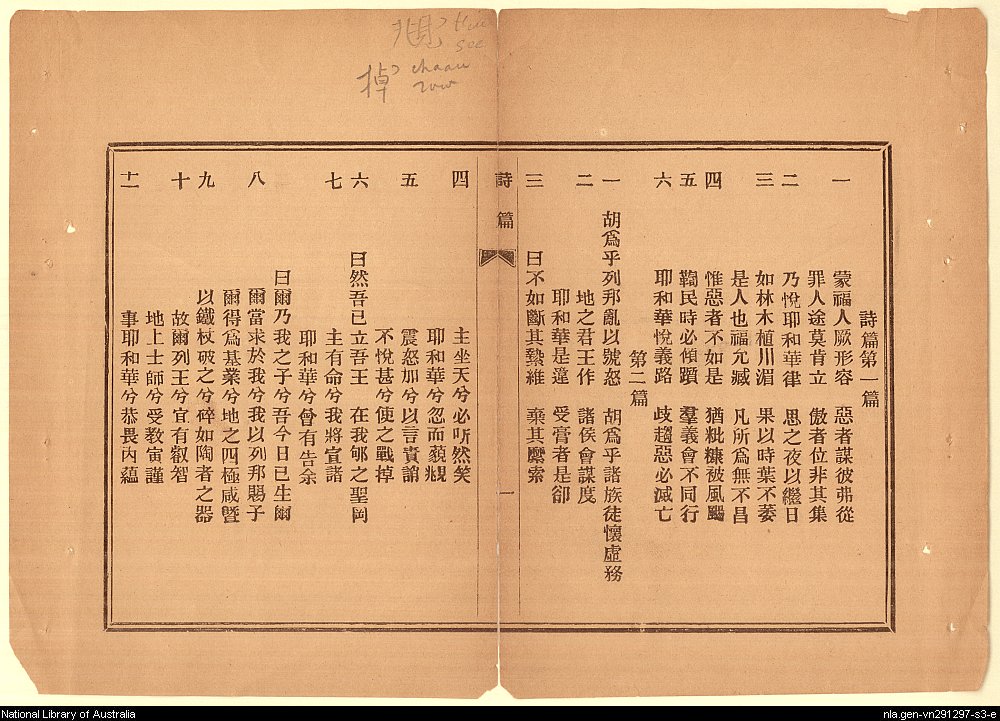 詩篇第一篇
一 蒙福人厥形容 惡者謀彼弗從
罪人途莫肯立 傲者位非其集
二 乃悅耶和華律 思之夜以繼日
三 如林木植川湄 果以時葉不萎
是人也福允臧 凡所爲無不昌
四 惟惡者不如是 猶粃糠被風颺
五 鞫民時必傾躓 羣義會不同行
六 耶和華悅義路 歧趨惡必滅亡
第二篇
一 胡爲乎列邦亂以號怒 胡爲乎諸族徒懷虛務
二 地之君王作 諸侯會謀度
耶和華是違 受膏者是卻
三 曰不如斷其縶維 棄其縻索
詩篇
一
四 主坐天兮必听然笑
耶和華兮忽而藐覜
五 震怒加兮以言責誚
不悅甚兮使之戰掉
六 曰然吾已立吾王 在我郇之聖岡
七 主有命兮我將宣諸
耶和華兮曾有告余
曰爾乃我之子兮吾今日已生爾
八 爾當求於我兮我以列邦賜子
爾得爲基業兮地之四極咸曁
九 以鐵杖破之兮碎如陶者之器
十 故爾列王兮宜有叡智
地上士師兮受教寅謹
十一 事耶和華兮恭畏內蘊
覜 t'iu
see
掉 chaau
row
National Library of Australia
nla.gen-vn291297-s3-e